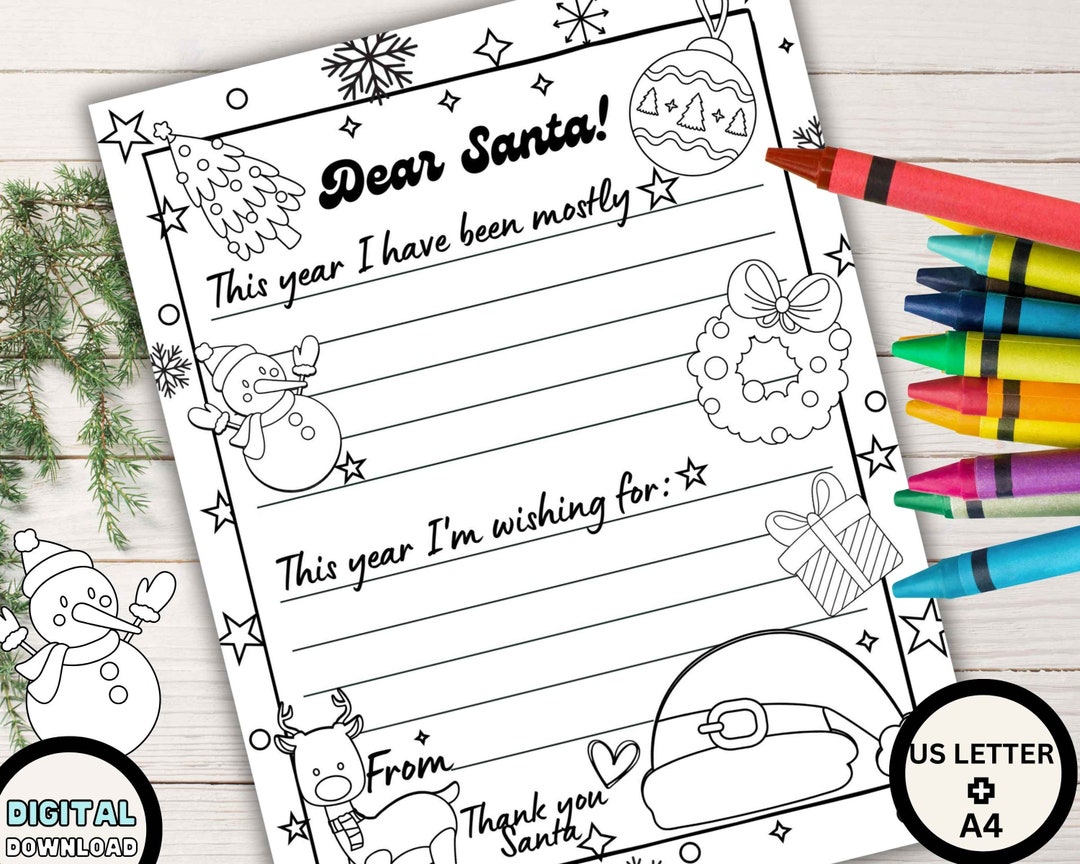 Dear Santa!
This year I have been mostly
This year I'm wishing for:
From
Thank you
Santa
DIGITAL
DOWNLOAD
US LETTER
A4